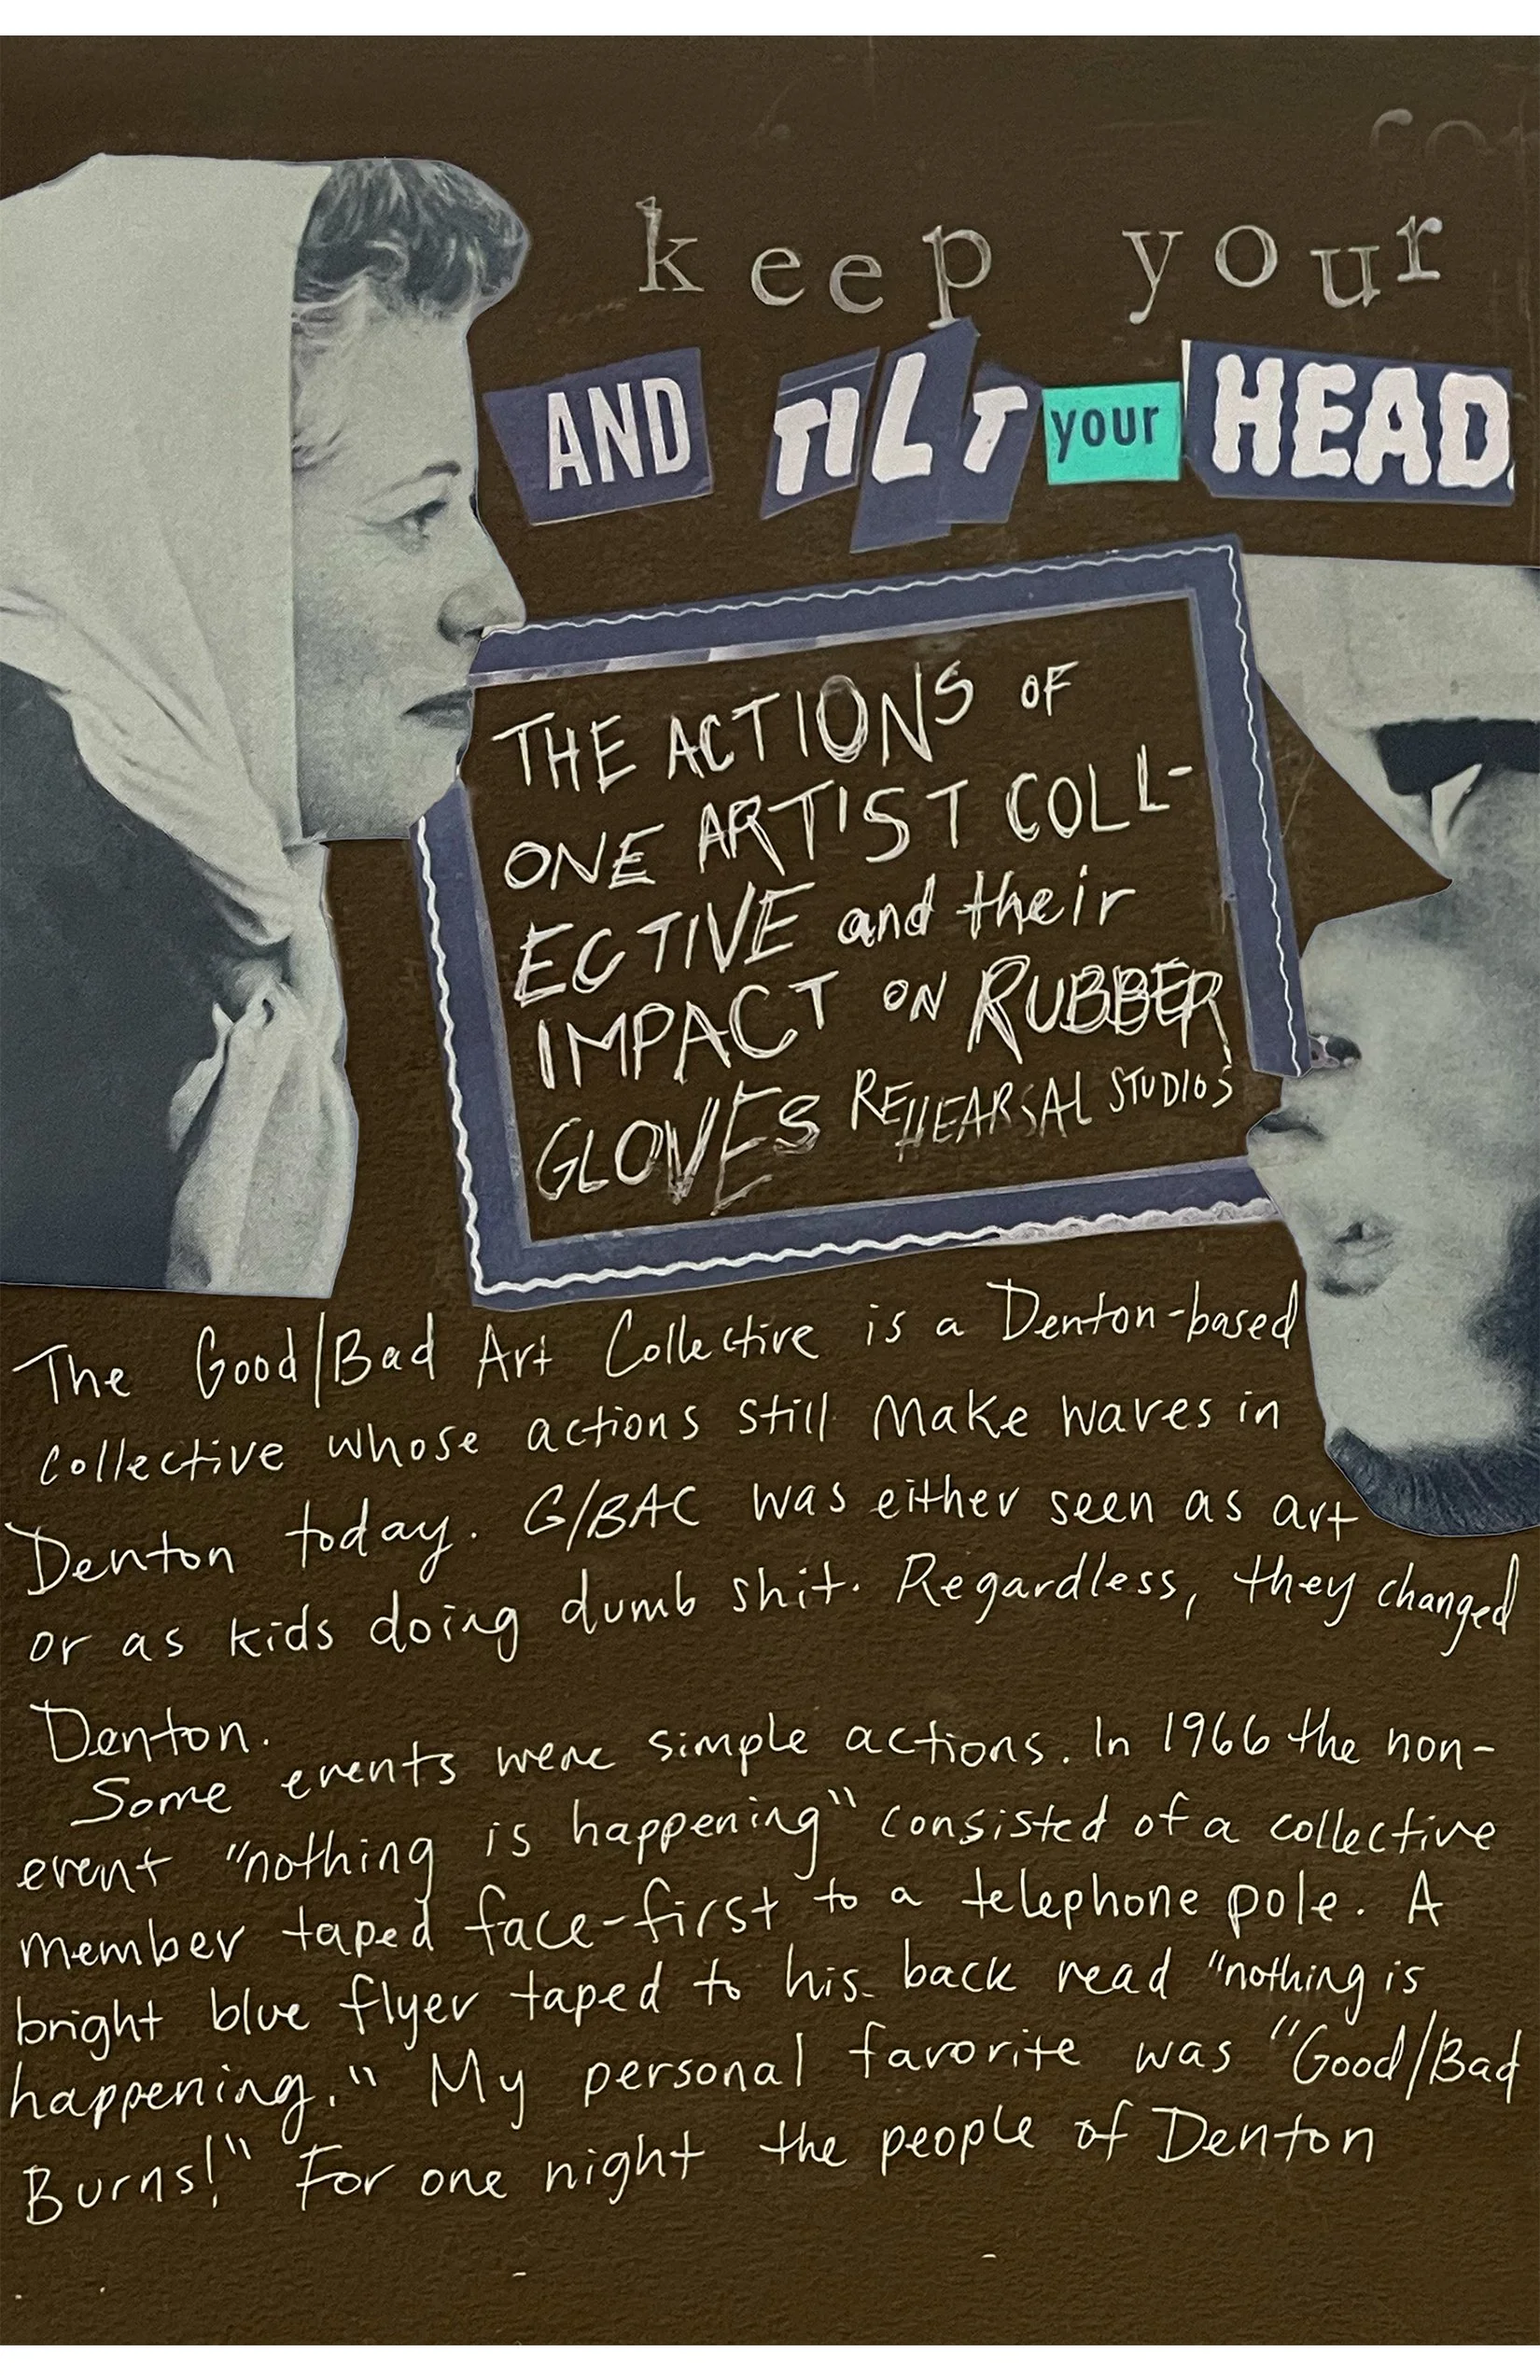 keep your
AND TILT your HEAD
THE ACTIONS OF
ONE ARTIST COLL-
ECTIVE and their
IMPACT ON RUBBER
GLOVES REHEARSAL STUDIOS
The Good/Bad Art Collective is a Denton-based
collective whose actions still make waves in
Denton today. G/BAC was either seen as art
or as kids doing dumb shit. Regardless, they changed
Denton.
Some events were simple actions. In 1966 the non-
event "nothing is happening" consisted of a collective
member taped face-first to a telephone pole. A
bright blue flyer taped to his back read "nothing is
happening." My personal favorite was "Good/Bad
Burns!" For one night the people of Denton